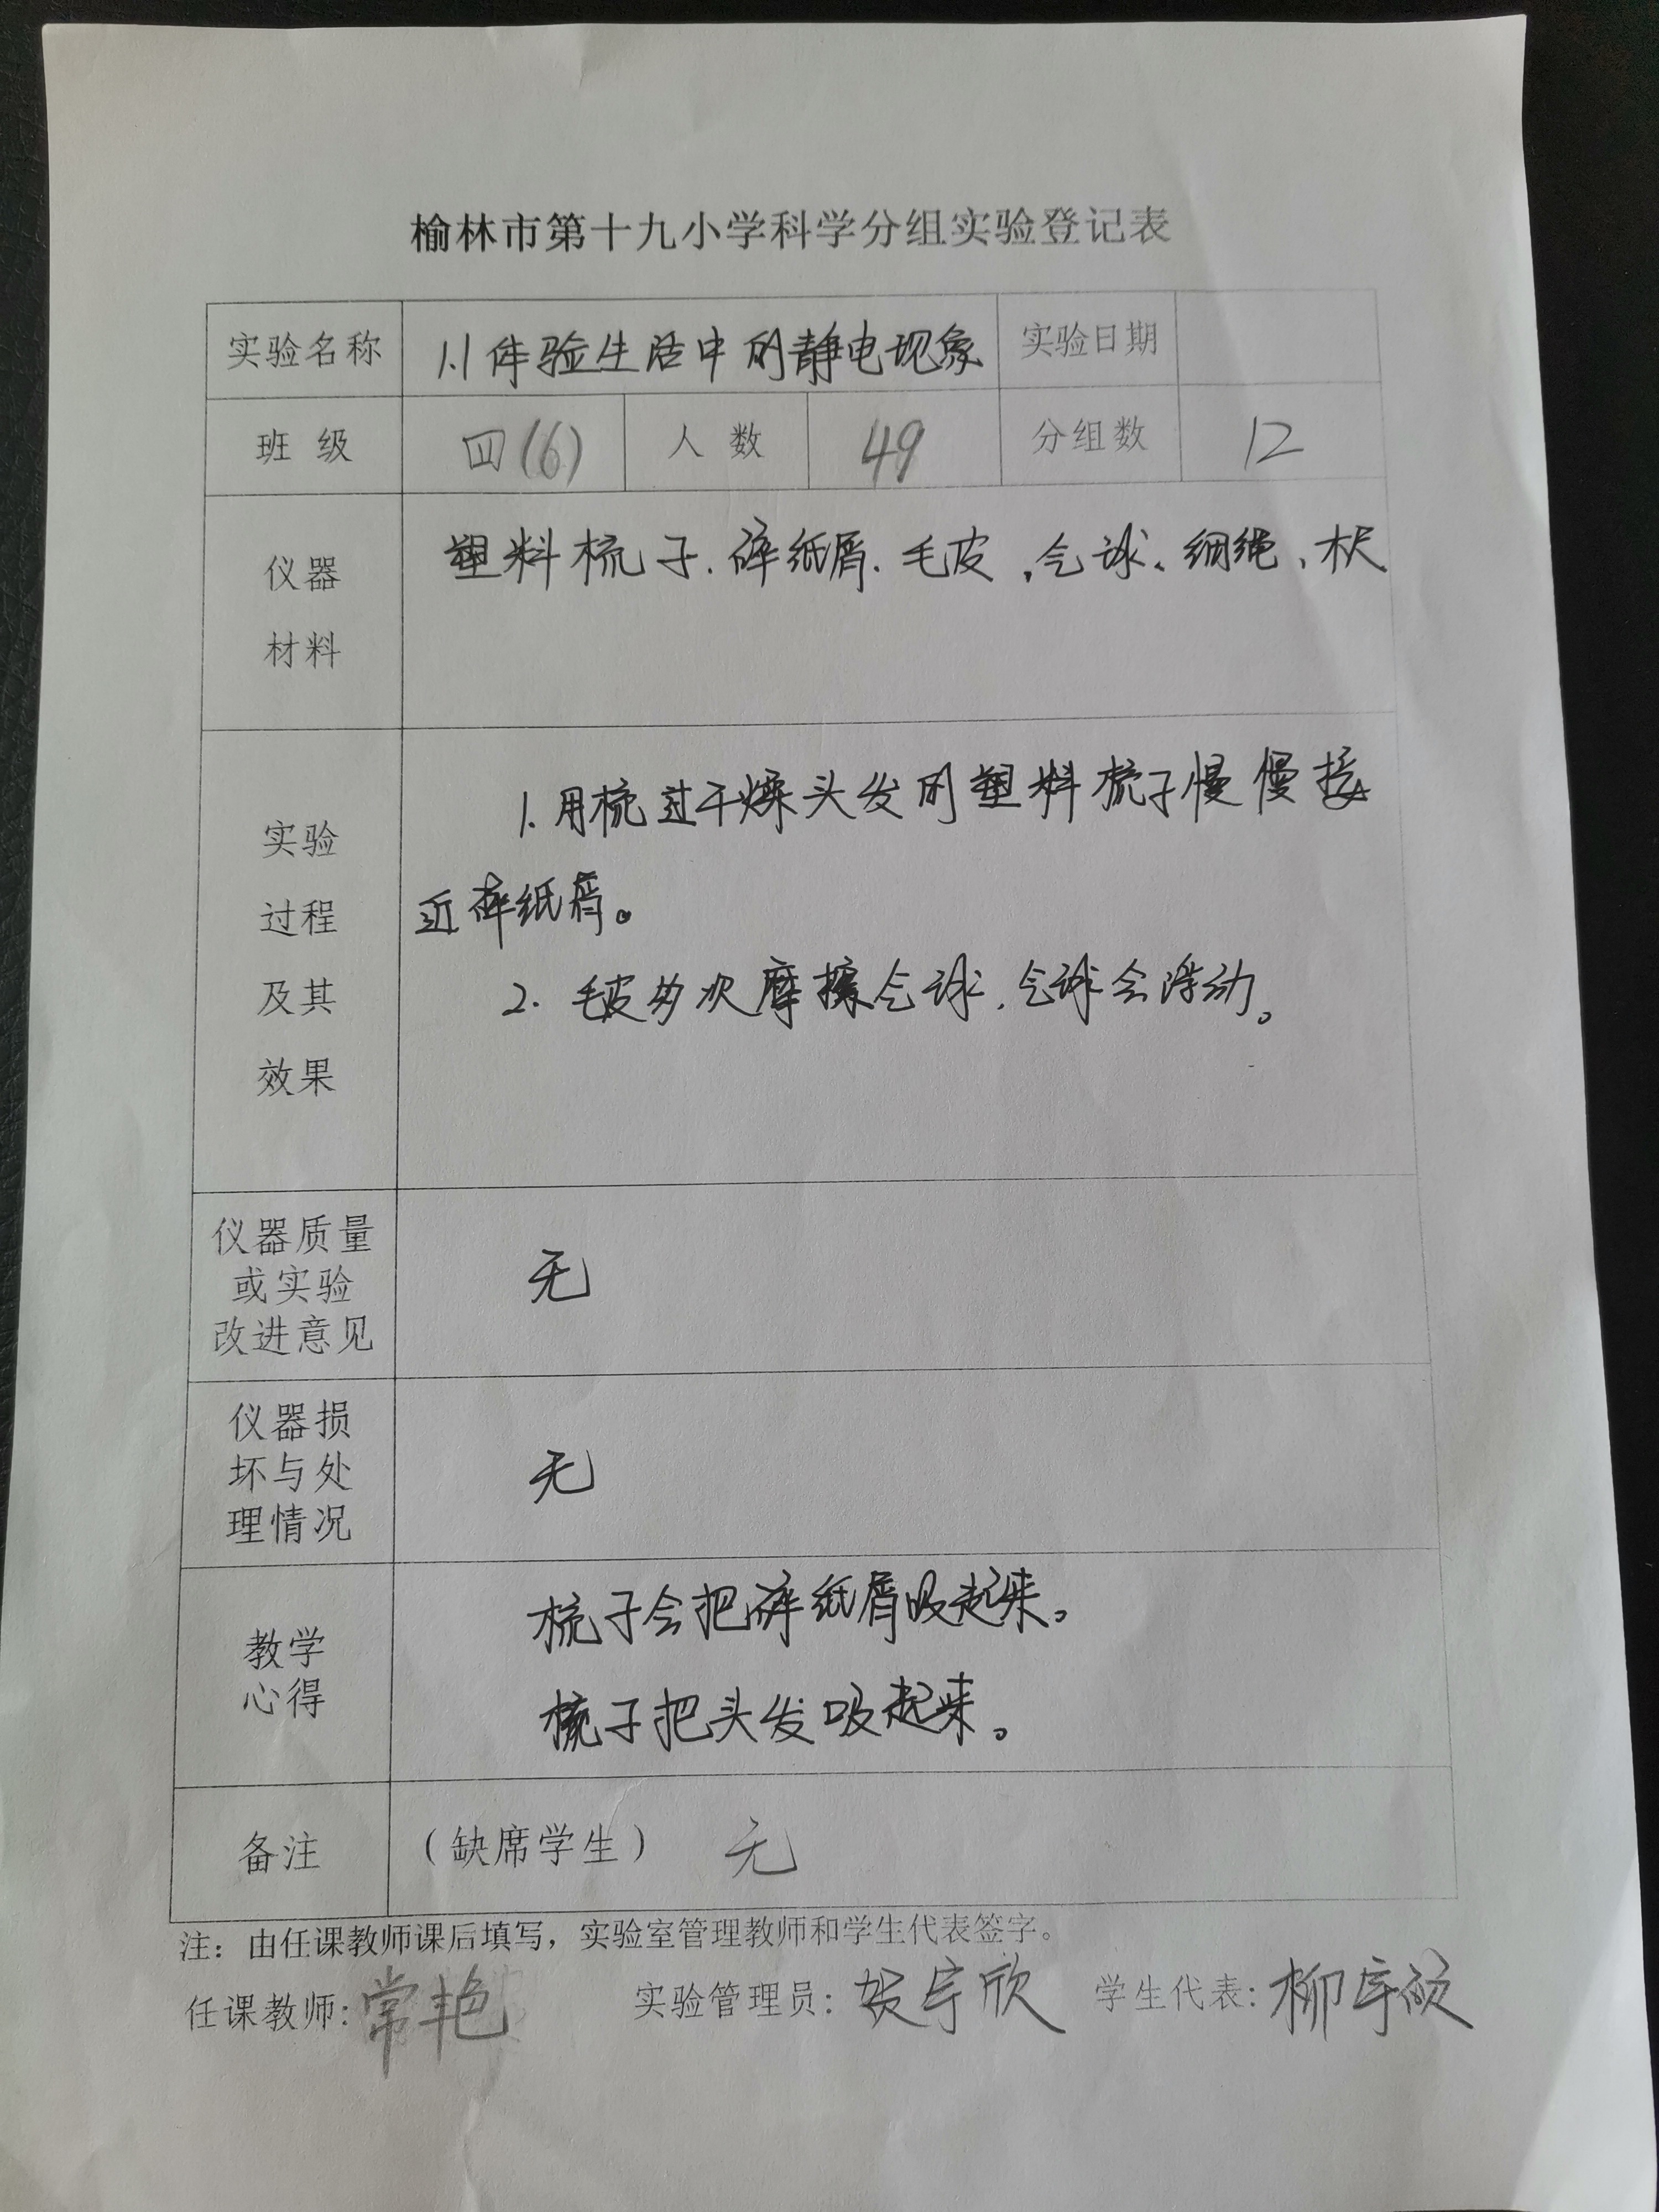 榆林市第十九小学科学分组实验登记表
实验名称 1.1 体验生活中的静电现象 实验日期
班级 四(6) 人数 49 分组数 12
仪器
材料
塑料梳子、碎纸屑、毛皮、气球、细绳、木尺
实验
过程
及其
效果
1. 用梳过干燥头发的塑料梳子慢慢接
近碎纸屑。
2. 毛皮多次摩擦气球,气球会浮动。
仪器质量
或实验
改进意见
无
仪器损
坏与处
理情况
无
教学
心得
梳子会把碎纸屑吸起来。
梳子把头发吸起来。
备注 (缺席学生) 无
注:由任课教师课后填写,实验室管理教师和学生代表签字。
任课教师:常艳 实验管理员:贺宇欣 学生代表:柳宇硕